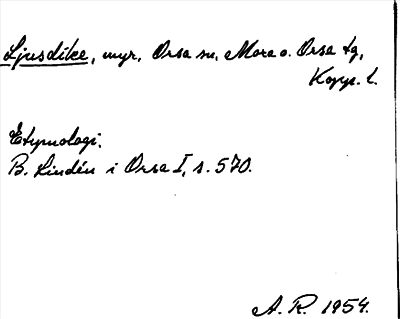 Ljusdike, myr, Orsa sn, Mora o. Orsa tg,
Kopp. l.
Etymologi.
B. Lindén i Orsa I, s. 570.
A. R. 1954.